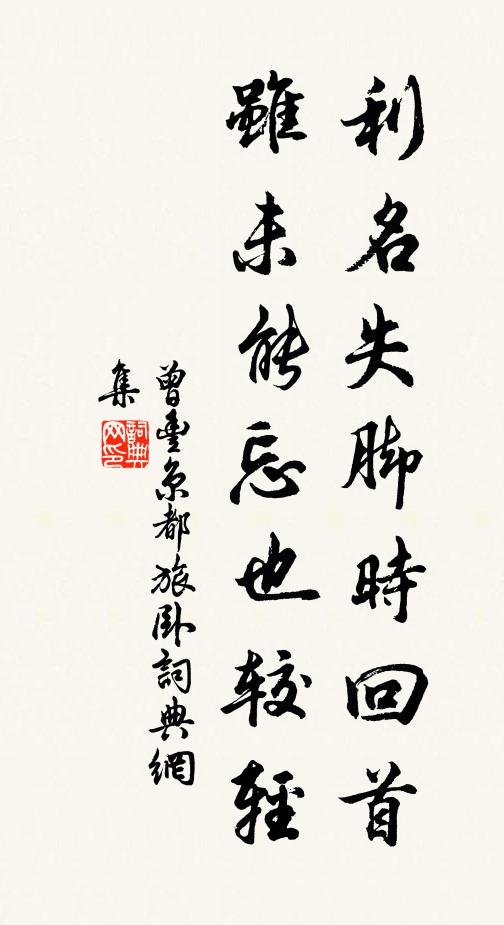 利名失脚時回首
雖未能忘也較輕
曾豐京都旅卧詞典網
集
詞典网印